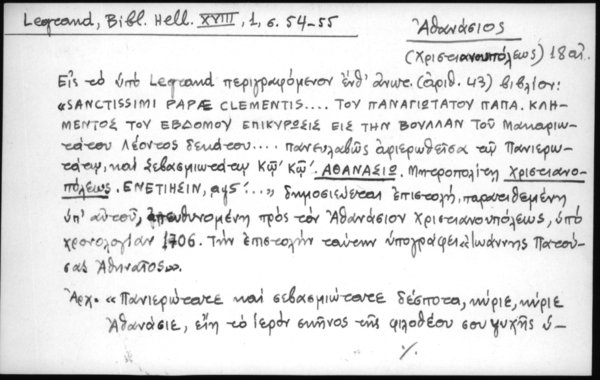 Legrand, Bibl. Hell. XVIII, 1, σ. 54-55
Ἀθανάσιος
(Χριστιανουπόλεως) 18 αἰ.
Εἰς τὸ ὑπὸ Legrand περιγραφόμενον ἐνθ' ἀνωτ. (ἀριθ. 43) βιβλίον:
«SANCTISSIMI PAPÆ CLEMENTIS.... ΤΟΥ ΠΑΝΑΓΙΩΤΑΤΟΥ ΠΑΠΑ. ΚΛΗ-
ΜΕΝΤΟΣ ΤΟΥ ΕΒΔΟΜΟΥ ΕΠΙΚΥΡΩΣΙΣ ΕΙΣ ΤΗΝ ΒΟΥΛΛΑΝ τοῦ Μακαριω-
τάτου Λέοντος δεκάτου.... πανευλαβῶς ἀφιερωθεῖσα τῷ Πανιερω-
τάτῳ, καὶ Σεβασμιωτάτῳ Κῷ' Κῷ'. ΑΘΑΝΑΣΙῼ. Μητροπολίτῃ Χριστιανο-
πόλεως. ΕΝΕΤΙΗΣΙΝ, αψς΄...» δημοσιεύεται ἐπιστολή, παρατιθεμένη
ὑπ' αὐτοῦ, ἀπευθυνομένη πρὸς τὸν Ἀθανάσιον Χριστιανουπόλεως, ὑπὸ
χρονολογίαν 1706. Τὴν ἐπιστολὴν ταύτην ὑπογράφει «Ἰωάννης Πατού-
σας Ἀθηναῖος».
Ἀρχ. «Πανιερώτατε καὶ σεβασμιώτατε δέσποτα, κύριε, κύριε
Ἀθανάσιε, εἴη τὸ ἱερὸν σκῆνος τῆς φιλοθέου σου ψυχῆς ὑ-
./.